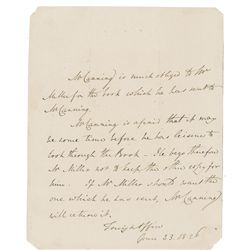 Mr Canning is much obliged to Mr
Miller for the book which he has sent to
Mr Canning.
Mr Canning is afraid that it may
be some time before he has leisure to
look through the Book - He begs therefore
Mr Miller not to keep the other copy for
him. If Mr Miller should want the
one which he has sent, Mr Canning
will return it.
Foreign Office
June 23. 1826